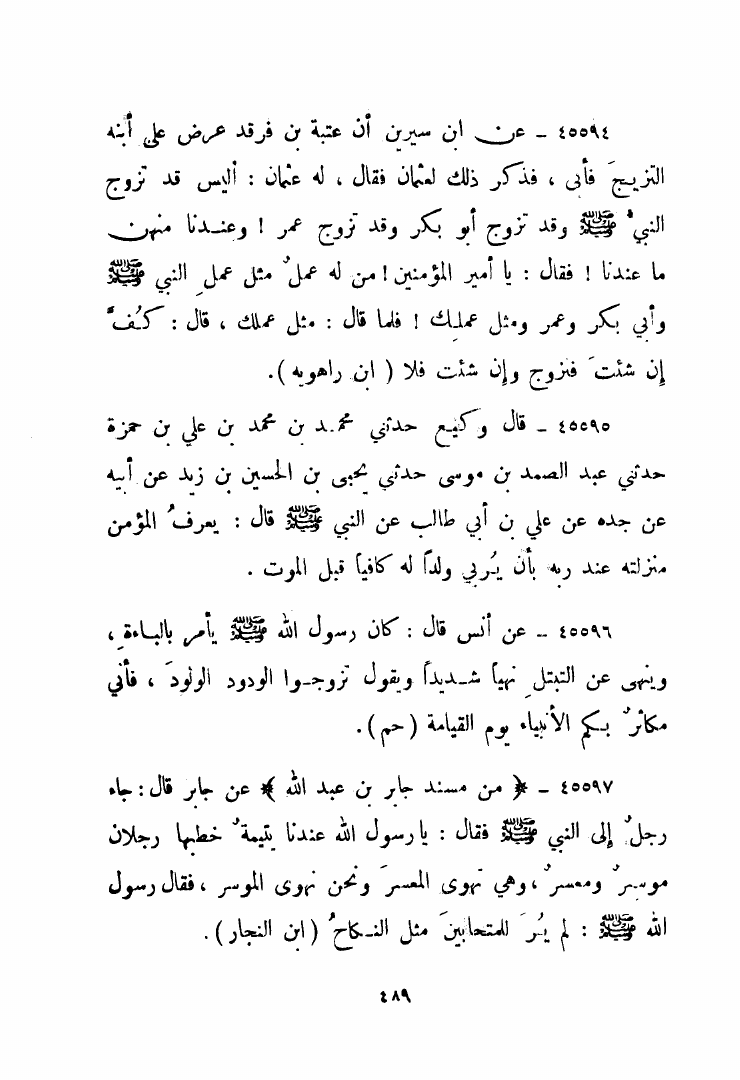 ٤٥٥٩٤ - عن ابن سيرين أن عتبة بن فرقد عرض على أبنه
التزيجَ فأبى ، فذكر ذلك لعثمان فقال ، له عثمان : أليس قد تزوج
النبيُّ ﷺ وقد تزوج أبو بكر وقد تزوج عمر ! وعندنا منهن
ما عندنا ! فقال : يا أمير المؤمنين ! من له عملٌ مثل عملِ النبي ﷺ
وأبي بكر وعمر ومثل عملِك ! فلما قال : مثل عملك ، قال : كُفَّ
إن شئتَ فتزوج وإن شئت فلا ( ابن راهويه ) .
٤٥٥٩٥ - قال وكيع حدثني محمد بن محمد بن علي بن حمزة
حدثني عبد الصمد بن موسى حدثني يحيى بن الحسين بن زيد عن أبيه
عن جده عن علي بن أبي طالب عن النبي ﷺ قال : يعرفُ المؤمن
منزلته عند ربه بأن يُربي ولداً له كافياً قبل الموت .
٤٥٥٩٦ - عن أنس قال : كان رسول الله ﷺ يأمر بالباءةِ ،
وينهى عن التبتلِ نهياً شديداً ويقول تزوجوا الودود الولودَ ، فأني
مكاثرٌ بكم الأنبياء يوم القيامة ( حم ) .
٤٥٥٩٧ - ﴿ من مسند جابر بن عبد الله ﴾ عن جابر قال : جاء
رجلٌ إلى النبي ﷺ فقال : يا رسول الله عندنا يتيمةٌ خطبها رجلان
موسرٌ ومعسرٌ ، وهي تهوى المعسرَ ونحن نهوى الموسر ، فقال رسول
الله ﷺ : لم يُرَ للمتحابينَ مثل النكاحُ ( ابن النجار ) .
٤٨٩